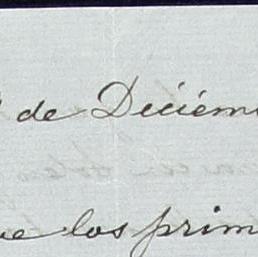 de Diciem
ue los prim